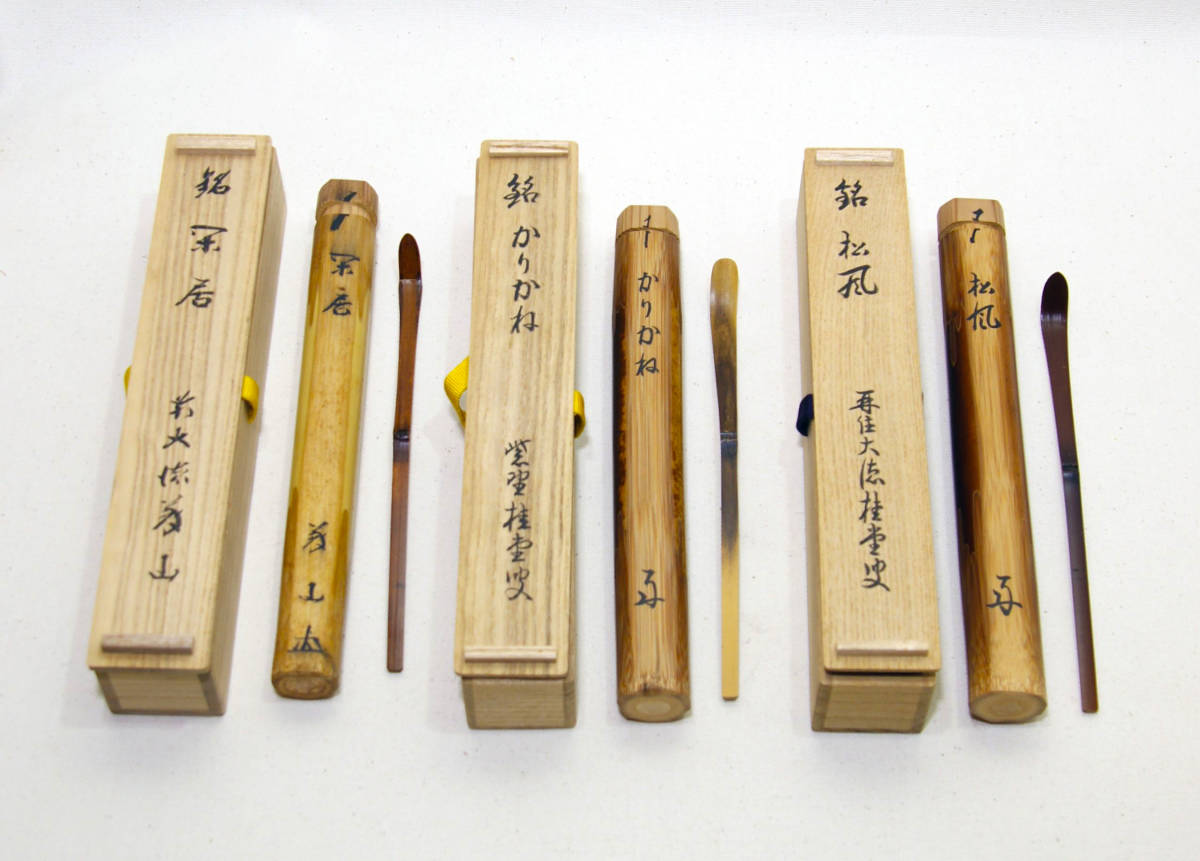 銘 閑居
前大徳義山
閑居
義山
銘 かりかね
紫野桂堂叟
かりかね
銘 松風
再住大徳桂堂叟
松風